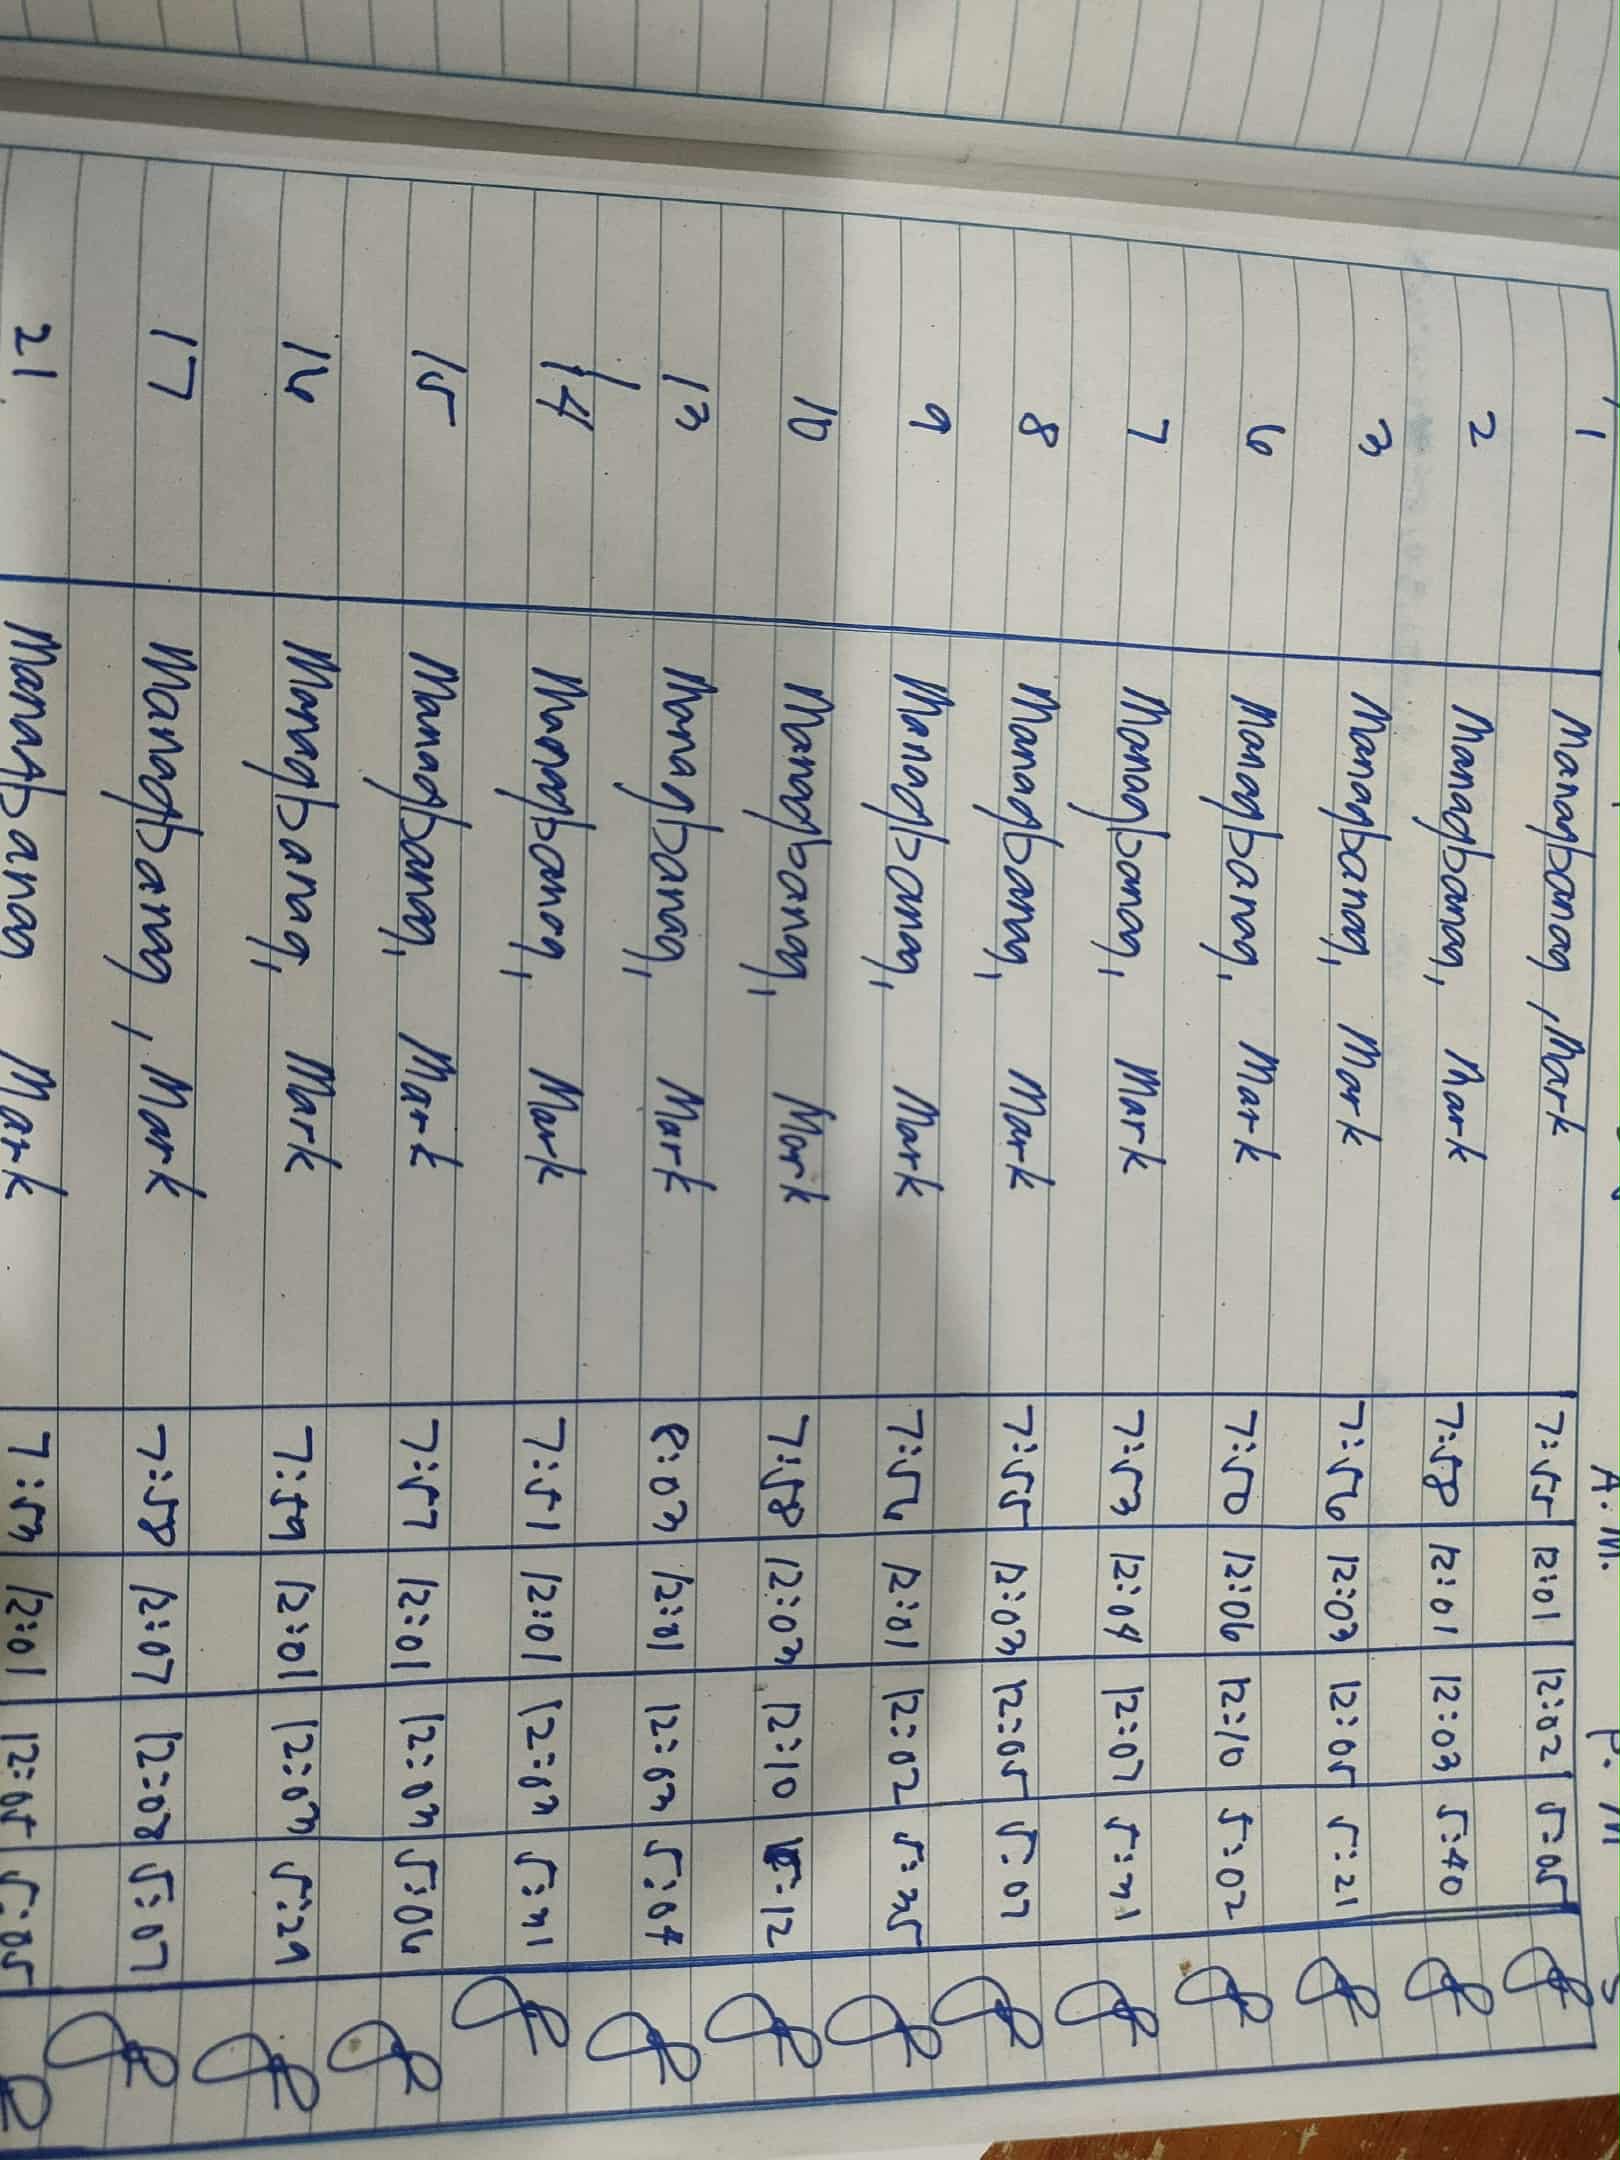 A.M. P.M
1 Managbanag, Mark 7:55 12:01 12:02 5:05
2 Managbanag, Mark 7:58 12:01 12:03 5:40
3 Managbanag, Mark 7:56 12:03 12:05 5:21
6 Managbanag, Mark 7:50 12:06 12:10 5:02
7 Managbanag, Mark 7:53 12:04 12:07 5:31
8 Managbanag, Mark 7:55 12:03 12:05 5:07
9 Managbanag, Mark 7:56 12:01 12:02 5:35
10 Managbanag, Mark 7:58 12:03 12:10 5:12
13 Managbanag, Mark 8:03 12:01 12:03 5:04
14 Managbanag, Mark 7:51 12:01 12:03 5:31
15 Managbanag, Mark 7:57 12:01 12:03 5:06
16 Managbanag, Mark 7:59 12:01 12:03 5:29
17 Managbanag, Mark 7:58 12:07 12:08 5:07
21 Managbanag, Mark 7:53 12:01 12:05 5:05